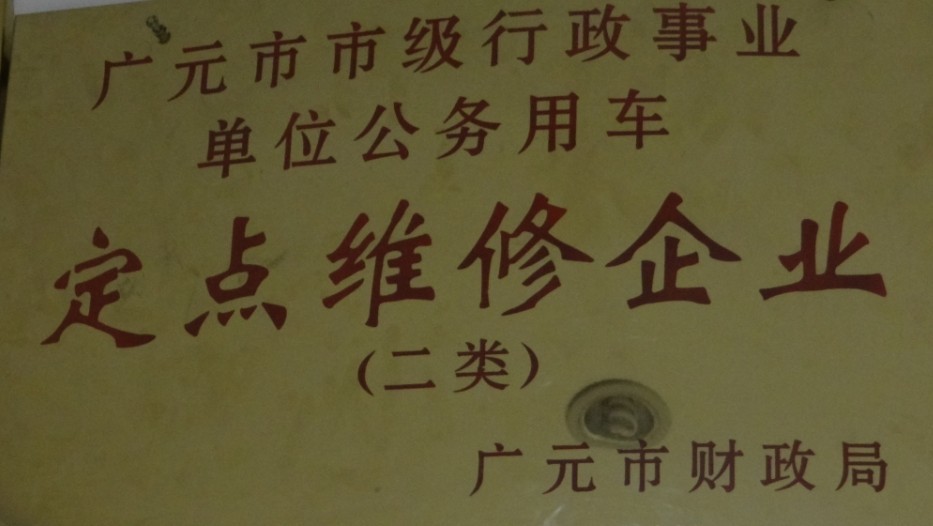 广元市市级行政事业
单位公务用车
定点维修企业
(二类)
广元市财政局